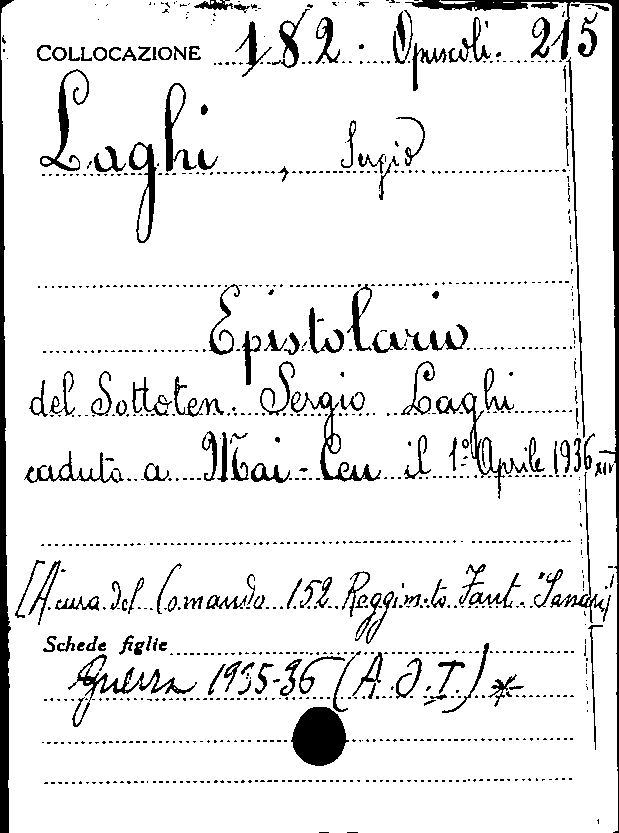 COLLOCAZIONE 182. Opuscoli. 215
Laghi, Sergio
Epistolario
del Sottoten. Sergio Laghi
caduto a Mai-Ceu il 1º Aprile 1936 XIV
[A cura del Comando 152 Reggim.to Fant. "Sassari"]
Schede figlie
Guerra 1935-36 (A.O.I.) *